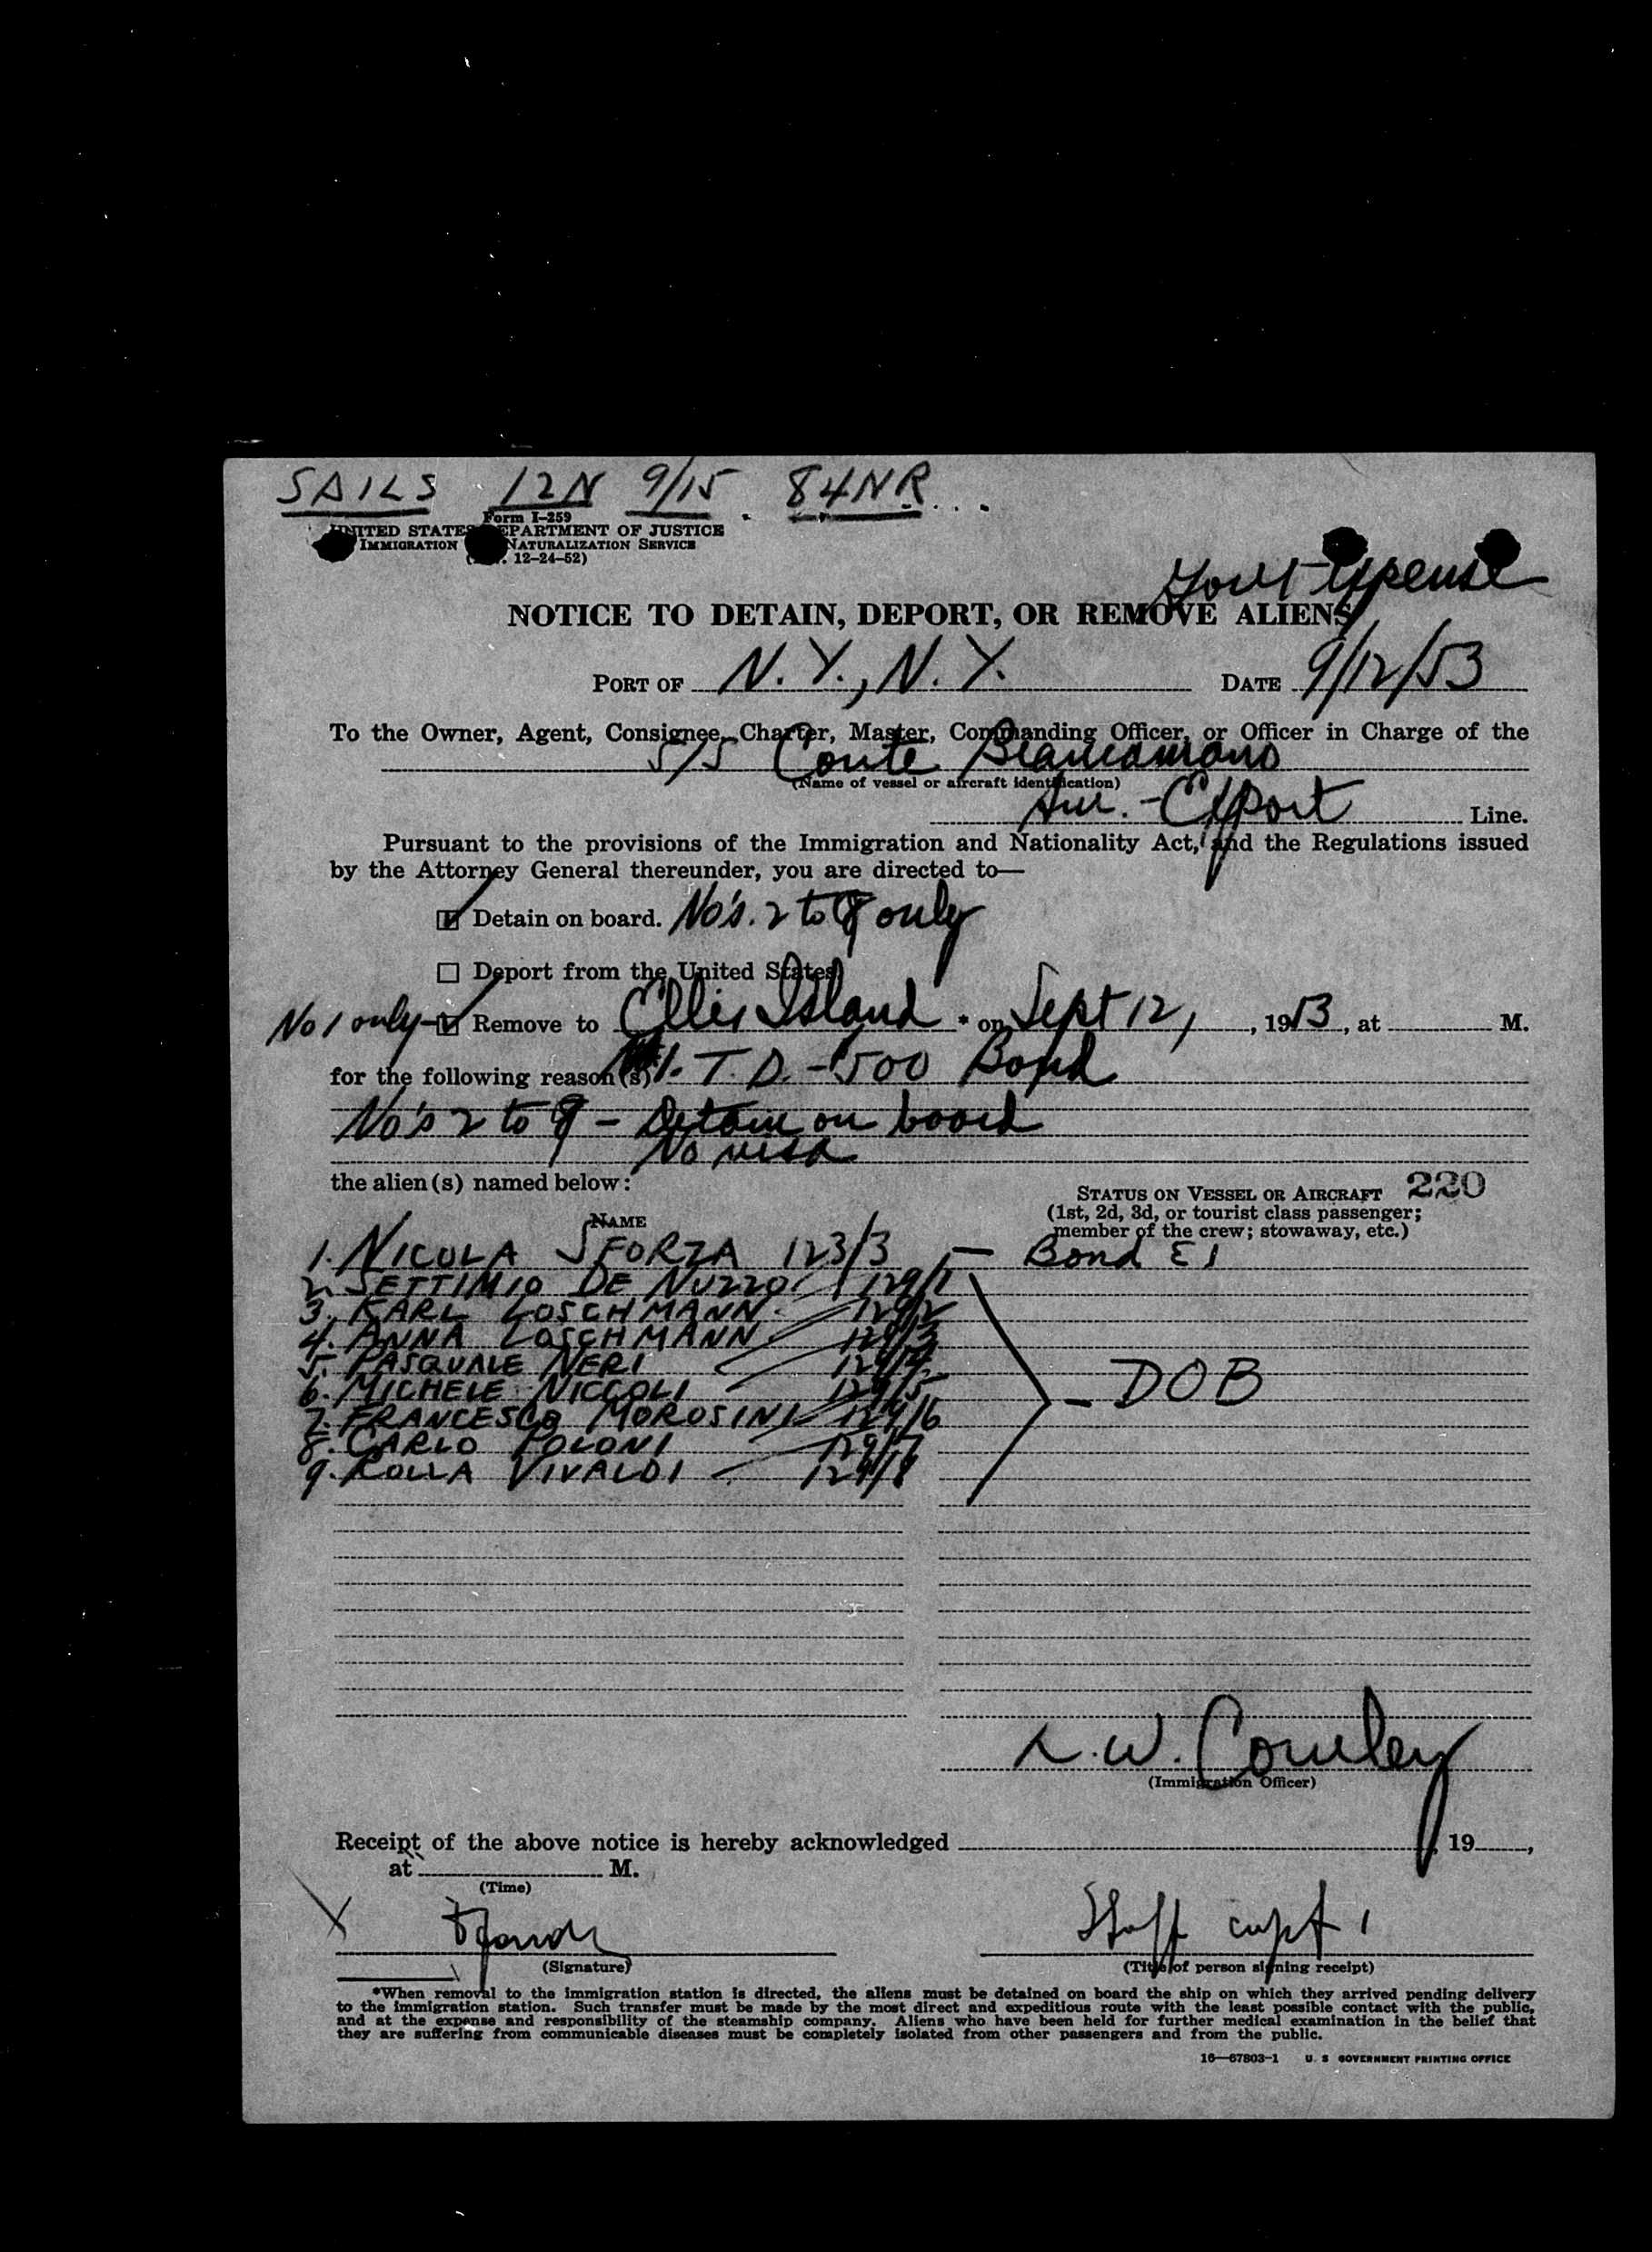 SAILS 12N 9/15. 84NR...
Form I-259
UNITED STATES DEPARTMENT OF JUSTICE
IMMIGRATION NATURALIZATION SERVICE
12-24-52)
Govt Expense
NOTICE TO DETAIN, DEPORT, OR REMOVE ALIENS
PORT OF N.Y., N.Y. DATE 9/12/53
To the Owner, Agent, Consignee, Charter, Master, Commanding Officer, or Officer in Charge of the
S/S Conte Biancamano
(Name of vessel or aircraft identification)
Am.-Export Line.
Pursuant to the provisions of the Immigration and Nationality Act, and the Regulations issued
by the Attorney General thereunder, you are directed to—
Detain on board. No's. 2 to 9 only
Deport from the United States
No 1 only - Remove to Ellis Island * on Sept 12, , 1953, at M.
for the following reason(s) 1. T.D. - 500 Bond
No's 2 to 9 - Detain on board
No visa
the alien(s) named below:
STATUS ON VESSEL OR AIRCRAFT 220
(1st, 2d, 3d, or tourist class passenger;
member of the crew; stowaway, etc.)
NAME
1. NICOLA SFORZA 123/3 — Bond EI
2. SETTIMIO DE NUZZO 129/1
3. KARL LOSCHMANN 129/2
4. ANNA LOSCHMANN 129/3
5. PASQUALE NERI 129/4
6. MICHELE NICCOLI 129/5
— DOB
7. FRANCESCO MOROSINI 129/6
8. CARLO POLONI 129/7
9. ROLLA VIVALDI 129/8
L.W. Cowley
(Immigration Officer)
Receipt of the above notice is hereby acknowledged , 19 ,
at M.
(Time)
X Staff capt
(Signature) (Title of person signing receipt)
*When removal to the immigration station is directed, the aliens must be detained on board the ship on which they arrived pending delivery
to the immigration station. Such transfer must be made by the most direct and expeditious route with the least possible contact with the public,
and at the expense and responsibility of the steamship company. Aliens who have been held for further medical examination in the belief that
they are suffering from communicable diseases must be completely isolated from other passengers and from the public.
16—67803-1 U. S GOVERNMENT PRINTING OFFICE